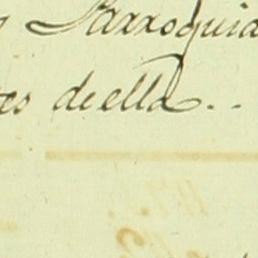 Parroquia
es de ella..